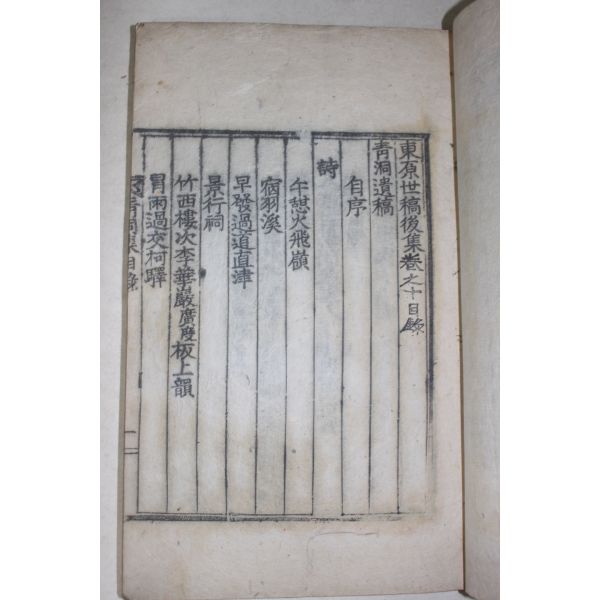 東原世稿後集卷之十目錄
青洞遺稿
自序
詩
午憇火飛嶺
宿羽溪
早發過道直津
景行祠
竹西樓次李華巖廣度板上韻
冒雨過交柯驛
青洞集目錄
一